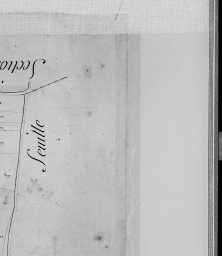 Section
Seuille